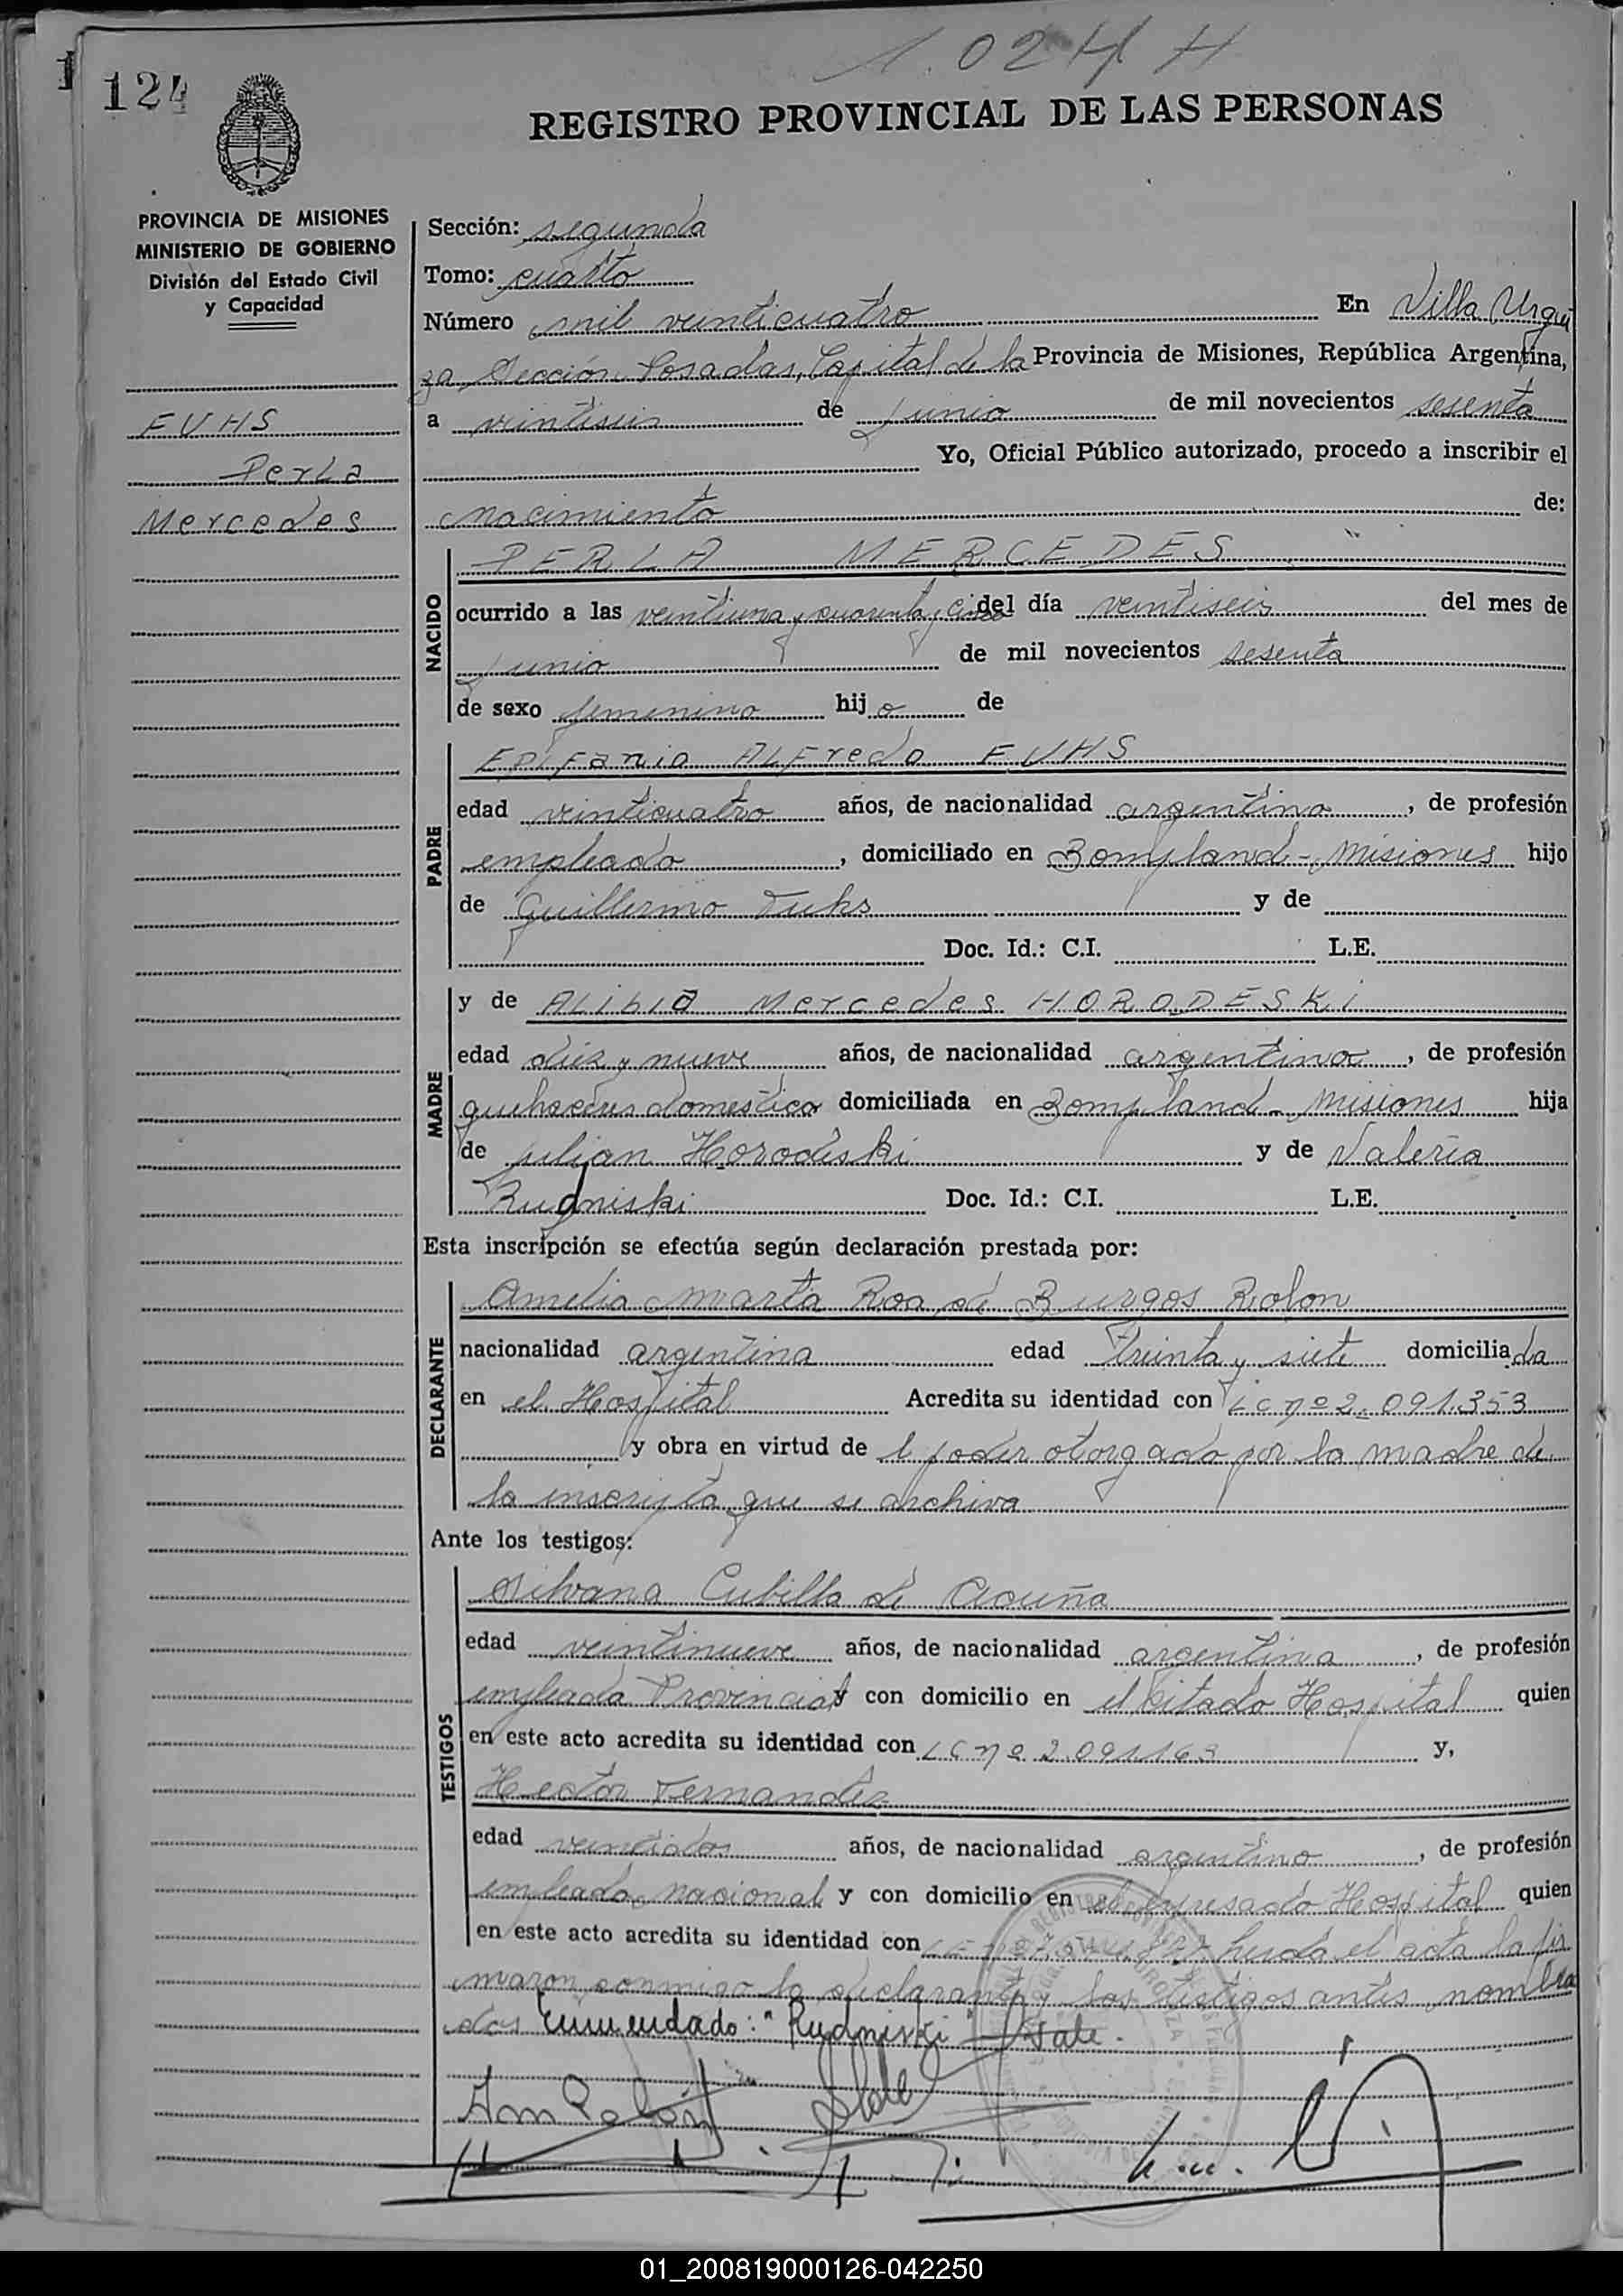 1.024 H
124
REGISTRO PROVINCIAL DE LAS PERSONAS
PROVINCIA DE MISIONES
MINISTERIO DE GOBIERNO
División del Estado Civil
y Capacidad
FUHS
Perla
Mercedes
Sección: segunda
Tomo: cuarto
Número mil veinticuatro En Villa Urqui
za Sección Posadas, Capital de la Provincia de Misiones, República Argentina,
a veintiseis de junio de mil novecientos sesenta
Yo, Oficial Público autorizado, procedo a inscribir el
nacimiento de:
NACIDO
PERLA MERCEDES
ocurrido a las veintiuna y cuarenta y cinco del día veintiseis del mes de
junio de mil novecientos sesenta
de sexo femenino hijo a de
PADRE
EPiFanio ALFredo FUHS
edad veinticuatro años, de nacionalidad argentino, de profesión
empleado, domiciliado en Bompland - Misiones hijo
de Guillermo Fuhs y de
Doc. Id.: C.I. L.E.
MADRE
y de ALibia Mercedes HORODESKi
edad diez y nueve años, de nacionalidad argentina, de profesión
quehaceres domestico domiciliada en Bompland - Misiones hija
de Julian Horodeski y de Valeria
Rudniski Doc. Id.: C.I. L.E.
Esta inscripción se efectúa según declaración prestada por:
DECLARANTE
Amelia Marta Roa de Burgos Rolon
nacionalidad argentina edad treinta y siete domiciliada
en el Hospital Acredita su identidad con LC nº 2.091.353
y obra en virtud de l poder otorgado por la madre de
la inscripta que se archiva
Ante los testigos:
TESTIGOS
Silvana Cubilla de Acuña
edad veintinueve años, de nacionalidad argentina, de profesión
empleada Provincial y con domicilio en el citado Hospital quien
en este acto acredita su identidad con LC nº 2.091163 y,
Hector Fernandez
edad veintidos años, de nacionalidad argentino, de profesión
empleado nacional y con domicilio en el expresado Hospital quien
en este acto acredita su identidad con leida el acta la fir
maron conmigo la declarante y los testigos antes nombra
dos Enmendado: "Rudniski" Vale.
01_200819000126-042250